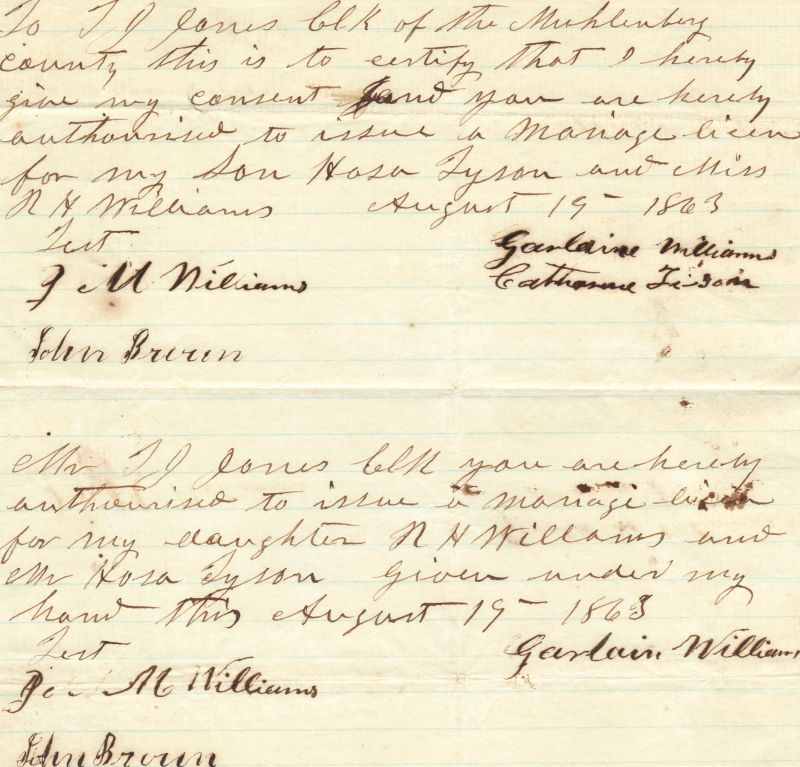 To T J Jones Clk of the Muhlenberg
county this is to certify that I hereby
give my consent and you are hereby
authourised to issue a Marriage licen
for my Son Hosa Tyson and Miss
R H Williams August 19 - 1863
Test Garlaine Williams
J M Williams Catharine Tison
John Brown
Mr T J Jones Clk you are hereby
authourised to issue a marriage licen
for my daughter R H Williams and
Mr Hosa Tyson Given under my
hand this August 19 - 1863
Test Garlain Williams
M Williams
John Brown